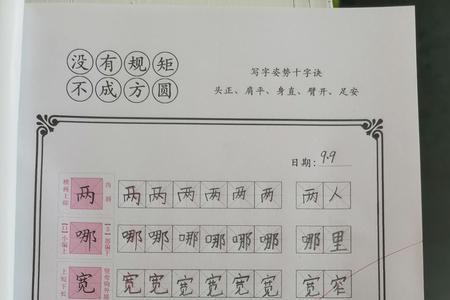 没有规矩
不成方圆
写字姿势十字诀
头正、肩平、身直、臂开、足安
日期：9.9
两 两 两 两 两 两 两 两人
哪 哪 哪 哪 哪 哪 哪 哪里
宽 宽 宽 宽 宽 宽 宽 宽窄